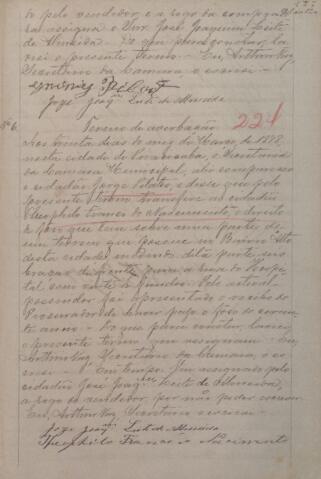 do pelo vendedor e a rogo da compra-
dora assigna o Snr. José Joaquim Leite
de Almeida. Do que para constar, la-
vrei o presente termo. Eu, Arthur Vaz
Secretario da Camara o escrevi.
Joze Joaqm Leite de Almeida
224
Nº 6. Termo de averbação
Aos trinta dias do mez de Março, de 1898,
nesta cidade de Piracicaba, e Secretaria
da Camara Municipal, ahi compareceu
o cidadão e disse que pelo
presente termo transfere ao cidadão
Theophilo Franco do Nascimento o direito
e que tem sobre uma parte de
um terreno que possue no Bairro Alto
desta cidade, medindo dita parte seis
braças de frente para a rua do Hospi-
tal sem de fundos. Pelo actual
possuidor foi apresentado o recibo do
Procurador de haver pago o foro do corrente
anno. Do que para constar, lavrei
o presente termo que assignam. Eu,
Arthur Vaz Secretario da Camara, o es-
crevi. Em tempo. Foi assignado pelo
cidadão José Joaqm Leite de Almeida,
a rogo do vendedor por não poder escrever
Eu, Arthur Vaz, Secretario escrevi.
Joze Joaqm Leite de Almeida
Theophilo Franco do Nascimento